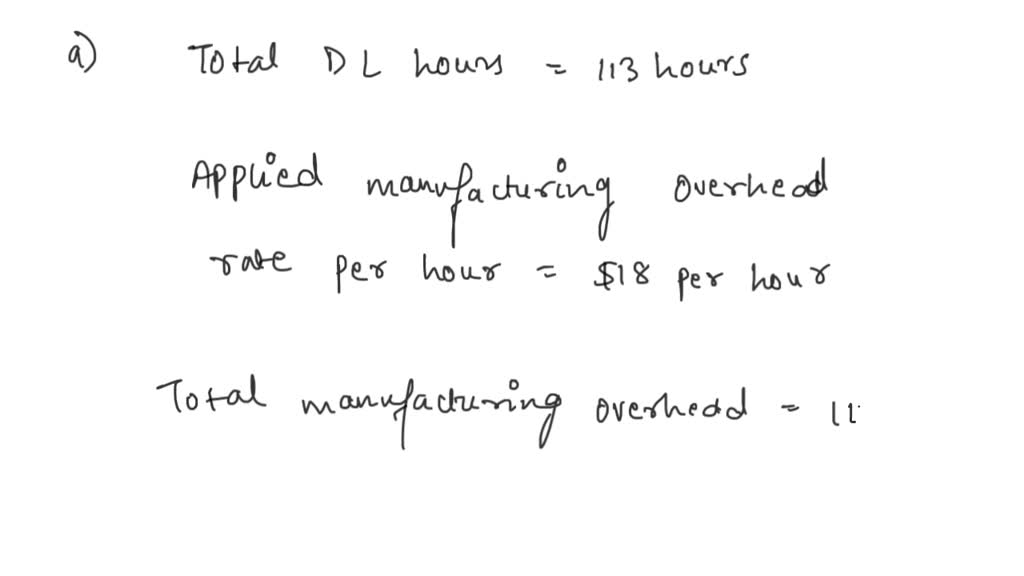 a) Total DL hours = 113 hours
Applied manufacturing overhead
rate per hour = $18 per hour
Total manufacturing overhead = 11